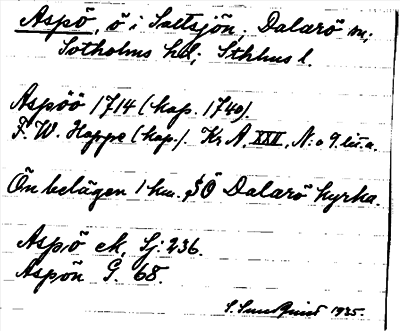 Aspö, ö i Saltsjön, Dalarö sn,
Sotholms hd, Sthlms l.
Aspöö 1714 (kop. 1740)
F. W. Hoppe (kop.). Kr A, XXII, N:o 9 lit. a.
Ön belägen 1 km. SÖ Dalarö kyrka.
Aspö ek, Sj: 236.
Aspön G 68.
S. Sundquist 1935.